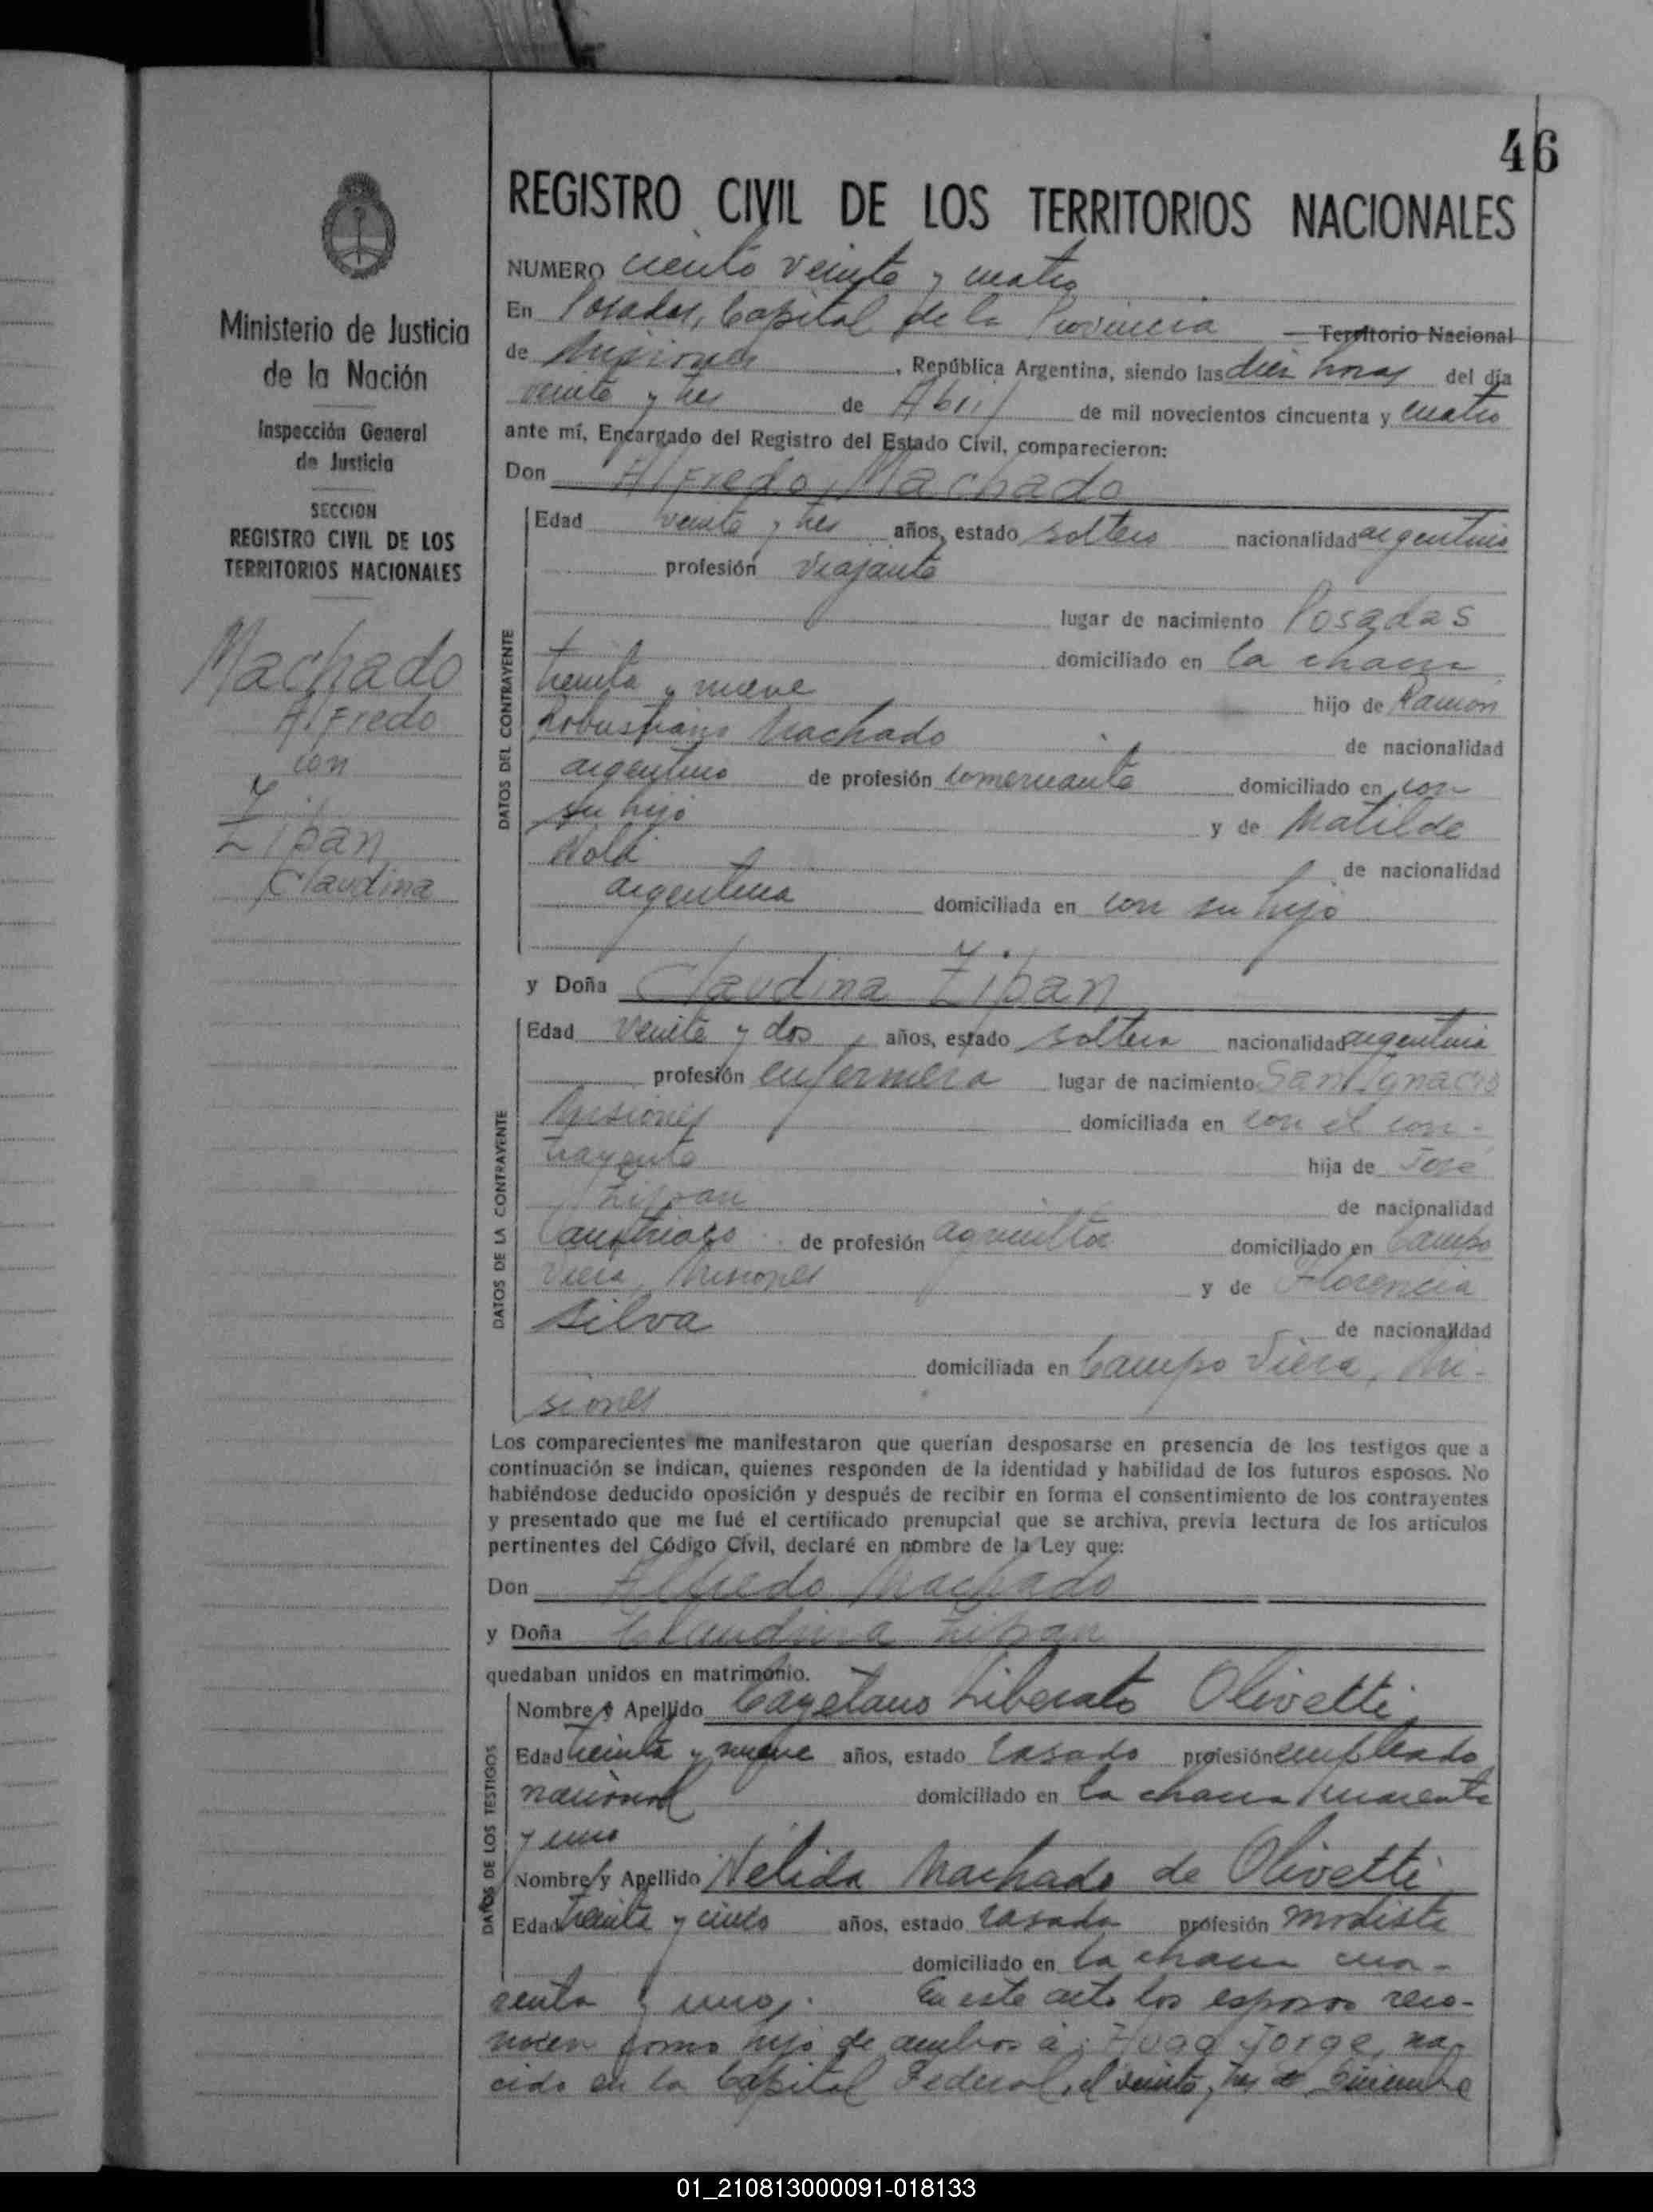 46
REGISTRO CIVIL DE LOS TERRITORIOS NACIONALES
NUMERO ciento veinte y cuatro
En Posadas, Capital de la Provincia Territorio Nacional
de Misiones, República Argentina, siendo las diez horas del día
veinte y tres de Abril de mil novecientos cincuenta y cuatro
ante mí, Encargado del Registro del Estado Civil, comparecieron:
Don Alfredo Machado
Edad veinte y tres años, estado soltero nacionalidad argentino
profesión viajante
lugar de nacimiento Posadas
domiciliado en la chacra
treinta y nueve hijo de Ramón
Robustiano Machado de nacionalidad
argentino de profesión comerciante domiciliado en con
su hijo y de Matilde
de nacionalidad
argentina domiciliada en con su hijo
y Doña Claudina Žiban
Edad veinte y dos años, estado soltera nacionalidad argentina
profesión enfermera lugar de nacimiento San Ignacio
Misiones domiciliada en con el con-
trayente hija de José
Žiban de nacionalidad
austriaco de profesión agricultor domiciliado en Campo
Viera, Misiones y de Florencia
Silva de nacionalidad
domiciliada en Campo Viera, Mi-
siones
Los comparecientes me manifestaron que querían desposarse en presencia de los testigos que a
continuación se indican, quienes responden de la identidad y habilidad de los futuros esposos. No
habiéndose deducido oposición y después de recibir en forma el consentimiento de los contrayentes
y presentado que me fué el certificado prenupcial que se archiva, previa lectura de los artículos
pertinentes del Código Civil, declaré en nombre de la Ley que:
Don Alfredo Machado
y Doña Claudina Žiban
quedaban unidos en matrimonio.
Nombre y Apellido Cayetano Liberato Olivetti
Edad treinta y nueve años, estado casado profesión empleado
nacional domiciliado en la chacra cuarenta
y uno
Nombre y Apellido Nelida Machado de Olivetti
Edad treinta y cinco años, estado casada profesión modista
domiciliado en la chacra cua-
renta y uno. En este acto los esposos reco-
nocen como hijo de ambos a: Hugo Jorge, na-
cido en la Capital Federal, el veinte y tres de Diciembre
DATOS DEL CONTRAYENTE
DATOS DE LA CONTRAYENTE
DATOS DE LOS TESTIGOS
Ministerio de Justicia
de la Nación
Inspección General
de Justicia
SECCION
REGISTRO CIVIL DE LOS
TERRITORIOS NACIONALES
Machado
Alfredo
con
Žiban
Claudina
01_210813000091-018133